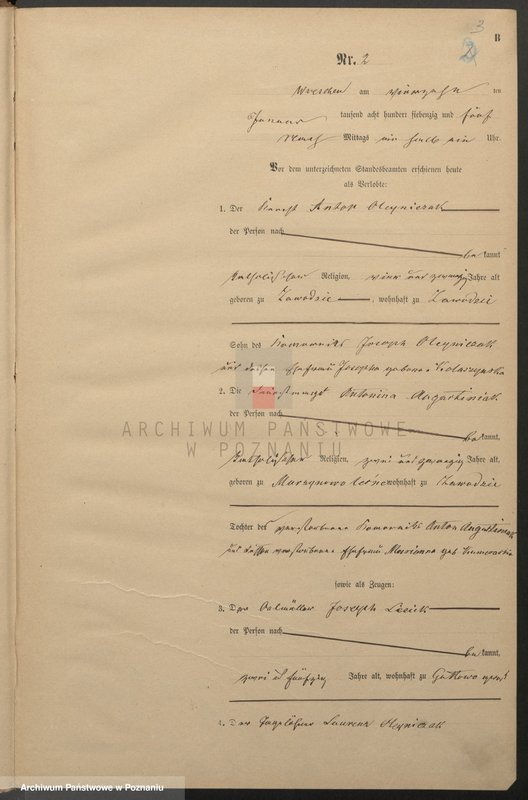 3
2
B
Nr. 2
Wreschen am vierzehn ten
Januar tausend acht hundert siebenzig und fünf
Nach Mittags ein halb ein Uhr.
Vor dem unterzeichneten Standesbeamten erschienen heute
als Verlobte:
1. Der Knecht Anton Oleyniczak
der Person nach
be kannt
katholischer Religion, vier und zwanzig Jahre alt
geboren zu Zawodzie, wohnhaft zu Zawodzie
Sohn des Komorniks Joseph Oleyniczak
und dessen Ehefrau Josepha geborene
2. Die Antonina Augustiniak
der Person nach
be kannt,
katholischer Religion, zwei und zwanzig Jahre alt,
geboren zu wohnhaft zu Zawodzie
Tochter des verstorbenen Komorniks Anton Augustiniak
und dessen verstorbene Ehefrau Marianna geb
sowie als Zeugen:
3. Der Oelmüller Joseph
der Person nach
be kannt,
zwei und fünfzig Jahre alt, wohnhaft zu
4. Der Tagelöhner Laurenz Oleyniczak
ARCHIWUM PAŃSTWOWE
W POZNANIU
Archiwum Państwowe w Poznaniu